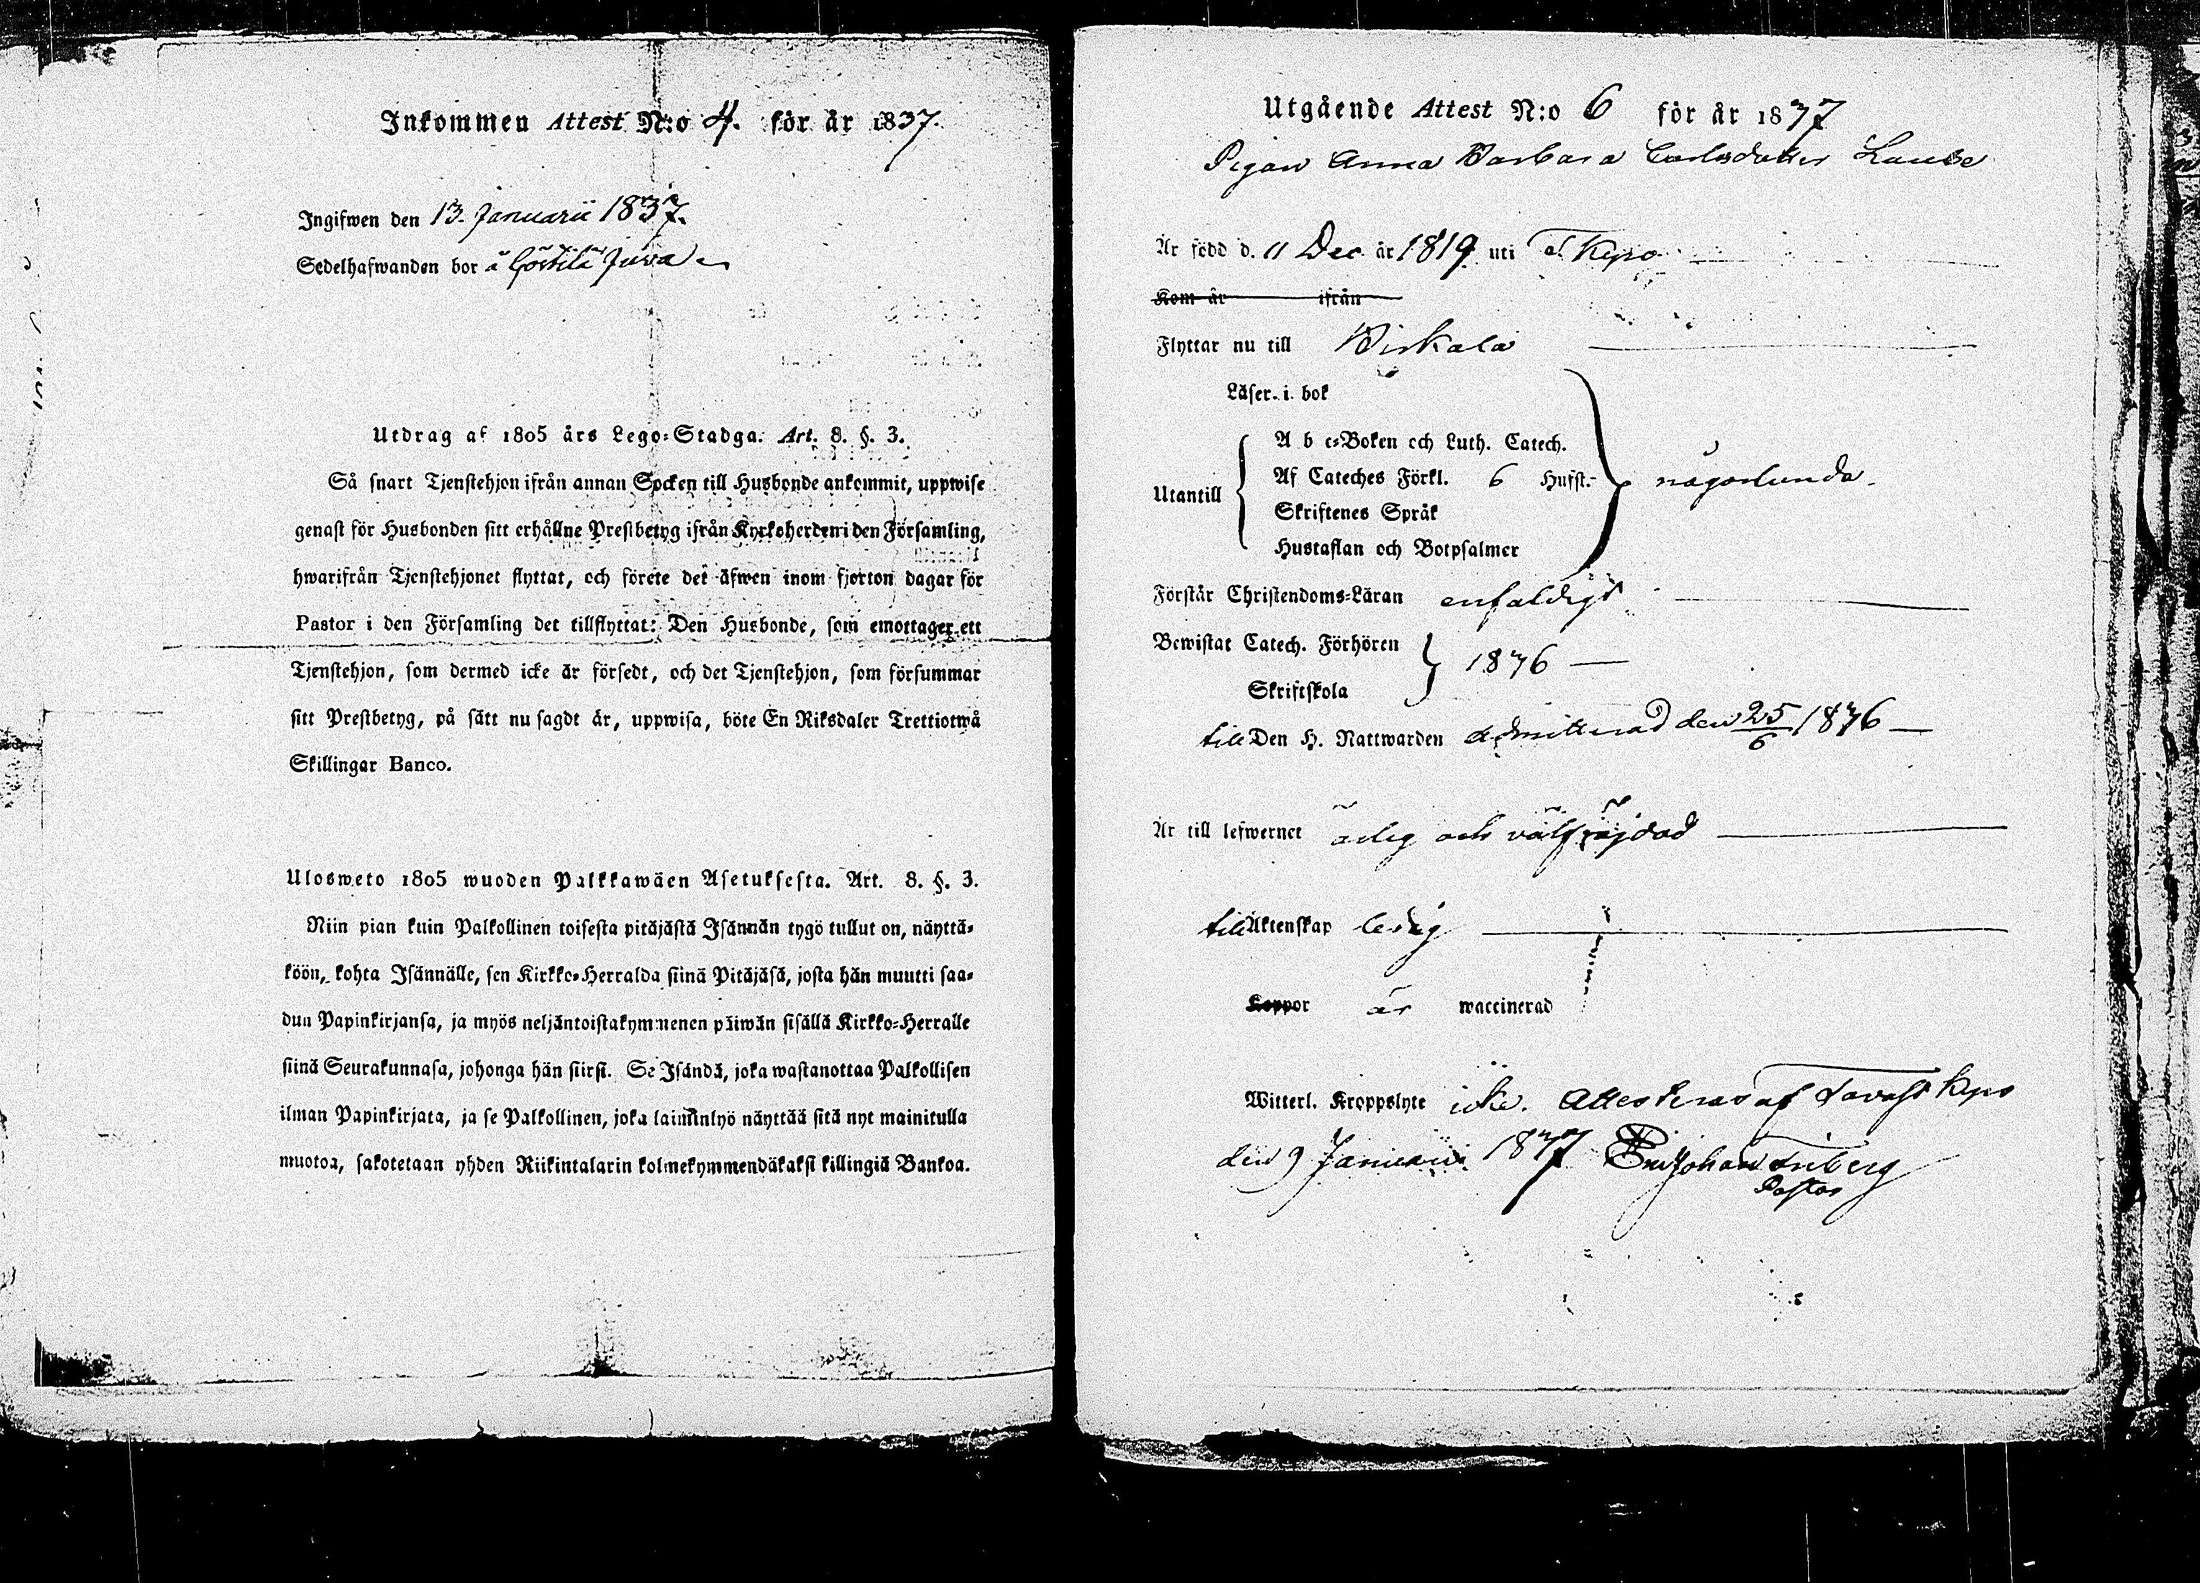 Inkommen Attest N:o 4. för år 1837.
Ingifwen den 13. Januarii 1837.
Sedelhafwanden bor å Göstilä Juva
Utdrag af 1805 års Lego-Stadga. Art. 8. §. 3.
Så snart Tjenstehjon ifrån annan Socken till Husbonde ankommit, uppwise
genast för Husbonden sitt erhållne Prestbetyg ifrån Kyrkoherden i den Församling,
hwarifrån Tjenstehjonet flyttat, och förete det äfwen inom fjorton dagar för
Pastor i den Församling det tillflyttat: Den Husbonde, som emottager ett
Tjenstehjon, som dermed icke är försedt, och det Tjenstehjon, som försummar
sitt Prestbetyg, på sätt nu sagdt är, uppwisa, böte En Riksdaler Trettiotwå
Skillingar Banco.
Ulosweto 1805 wuoden Palkkawäen Asetuksesta. Art. 8. §. 3.
Niin pian kuin Palkollinen toisesta pitäjästä Isännän tygö tullut on, näyttä-
köön, kohta Isännälle, sen Kirkko-Herralda siinä Pitäjäsä, josta hän muutti saa-
dun Papinkirjansa, ja myös neljäntoistakymmenen päiwän sisällä Kirkko-Herralle
siinä Seurakunnasa, johonga hän siirsi. Se Isändä, joka wastanottaa Palkollisen
ilman Papinkirjata, ja se Palkollinen, joka laiminlyö näyttää sitä nyt mainitulla
muotoa, sakotetaan yhden Riikintalarin kolmekymmendäkaksi killingiä Bankoa.
Utgående Attest N:o 6 för år 1837
Pigan Anna Barbara Carlsdotter
Är född d. 11 Dec. år 1819 uti T. Kyro
Kom år ifrån
Flyttar nu till Birkala
Läser i bok
Utantill
A b c-Boken och Luth. Catech.
Af Cateches Förkl. 6 Hufst.
någorlunda.
Skriftenes Språk
Hustaflan och Botpsalmer
Förstår Christendoms-Läran enfaldigt
Bewistat Catech. Förhören
1836
Skriftskola
till Den H. Nattwarden admitterad den 25/6 1836
Är till lefwernet ärlig och välfräjdad
till Äktenskap ledig
Koppor är waccinerad
Witterl. Kroppslyte icke. Attesteras af Tavast Kyro
den 9 Januarii 1837 Johan Friberg
Pastor